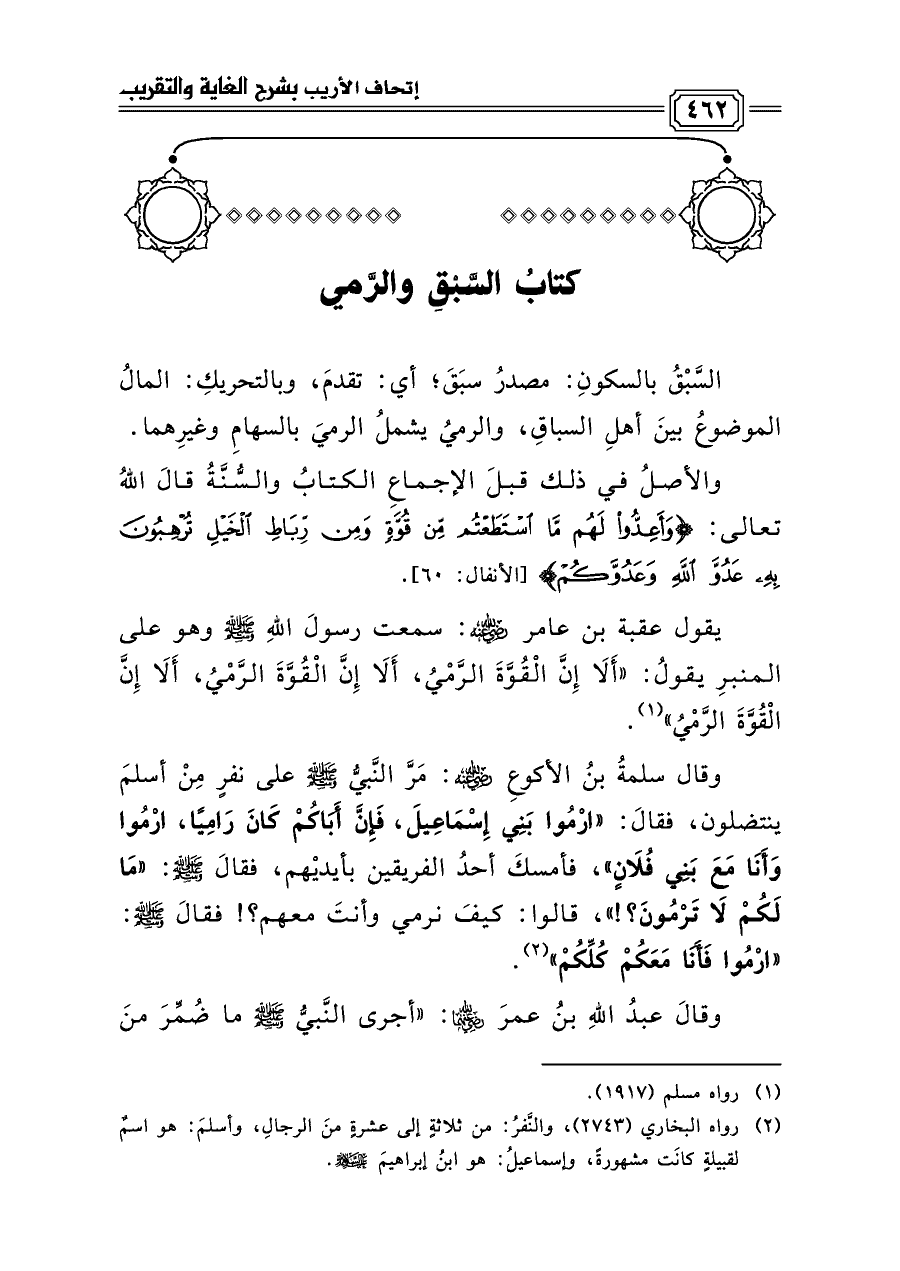 إتحاف الأريب بشرح الغاية والتقريب
٤٦٢
كتابُ السَّبْقِ والرَّمي
السَّبْقُ بالسكونِ: مصدرُ سبَقَ؛ أي: تقدمَ، وبالتحريكِ: المالُ
الموضوعُ بينَ أهلِ السباقِ، والرميُ يشملُ الرميَ بالسهامِ وغيرِهما.
والأصلُ في ذلك قبلَ الإجماعِ الكتابُ والسُّنَّةُ قالَ اللهُ
تعالى: ﴿وَأَعِدُّوا۟ لَهُم مَّا ٱسْتَطَعْتُم مِّن قُوَّةٍ وَمِن رِّبَاطِ ٱلْخَيْلِ تُرْهِبُونَ
بِهِۦ عَدُوَّ ٱللَّهِ وَعَدُوَّكُمْ﴾ [الأنفال: ٦٠].
يقول عقبة بن عامر رضي الله عنه: سمعت رسولَ اللهِ ﷺ وهو على
المنبرِ يقولُ: «أَلَا إِنَّ الْقُوَّةَ الرَّمْيُ، أَلَا إِنَّ الْقُوَّةَ الرَّمْيُ، أَلَا إِنَّ
الْقُوَّةَ الرَّمْيُ»(١).
وقال سلمةُ بنُ الأكوعِ رضي الله عنه: مَرَّ النَّبيُّ ﷺ على نفرٍ مِنْ أسلمَ
ينتضلون، فقالَ: «ارْمُوا بَنِي إِسْمَاعِيلَ، فَإِنَّ أَبَاكُمْ كَانَ رَامِيًا، ارْمُوا
وَأَنَا مَعَ بَنِي فُلَانٍ»، فأمسكَ أحدُ الفريقين بأيديْهم، فقالَ ﷺ: «مَا
لَكُمْ لَا تَرْمُونَ؟!»، قالوا: كيفَ نرمي وأنتَ معهم؟! فقالَ ﷺ:
«ارْمُوا فَأَنَا مَعَكُمْ كُلِّكُمْ»(٢).
وقالَ عبدُ اللهِ بنُ عمرَ رضي الله عنهما: «أجرى النَّبيُّ ﷺ ما ضُمِّرَ منَ
(١) رواه مسلم (١٩١٧).
(٢) رواه البخاري (٢٧٤٣)، والنَّفرُ: من ثلاثةٍ إلى عشرةٍ منَ الرجالِ، وأسلمَ: هو اسمٌ
لقبيلةٍ كانَت مشهورةً، وإسماعيلُ: هو ابنُ إبراهيمَ عليه السلام.